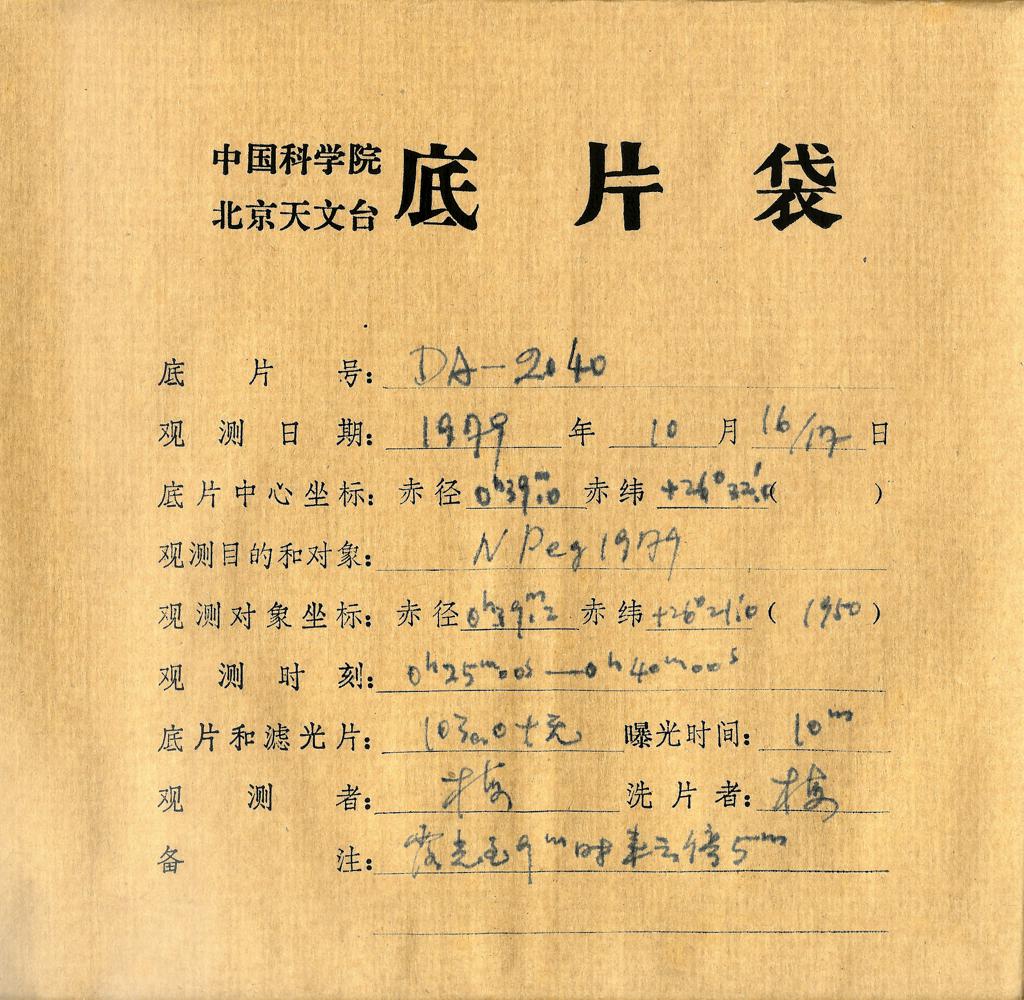 中国科学院
北京天文台 底片袋
底片号: DA-2040
观测日期: 1979年 10月 16/17日
底片中心坐标: 赤径 0ʰ39ᵐ.0 赤纬 +26°32'.0 ( )
观测目的和对象: N Peg 1979
观测对象坐标: 赤径 0ʰ39ᵐ.2 赤纬 +26°21'.0 ( 1950 )
观测时刻: 0ʰ25ᵐ00ˢ—0ʰ40ᵐ00ˢ
底片和滤光片: 103a0+无 曝光时间: 10ᵐ
观测者: 梅 洗片者: 梅
备注: 露光至9ᵐ时来云停5ᵐ